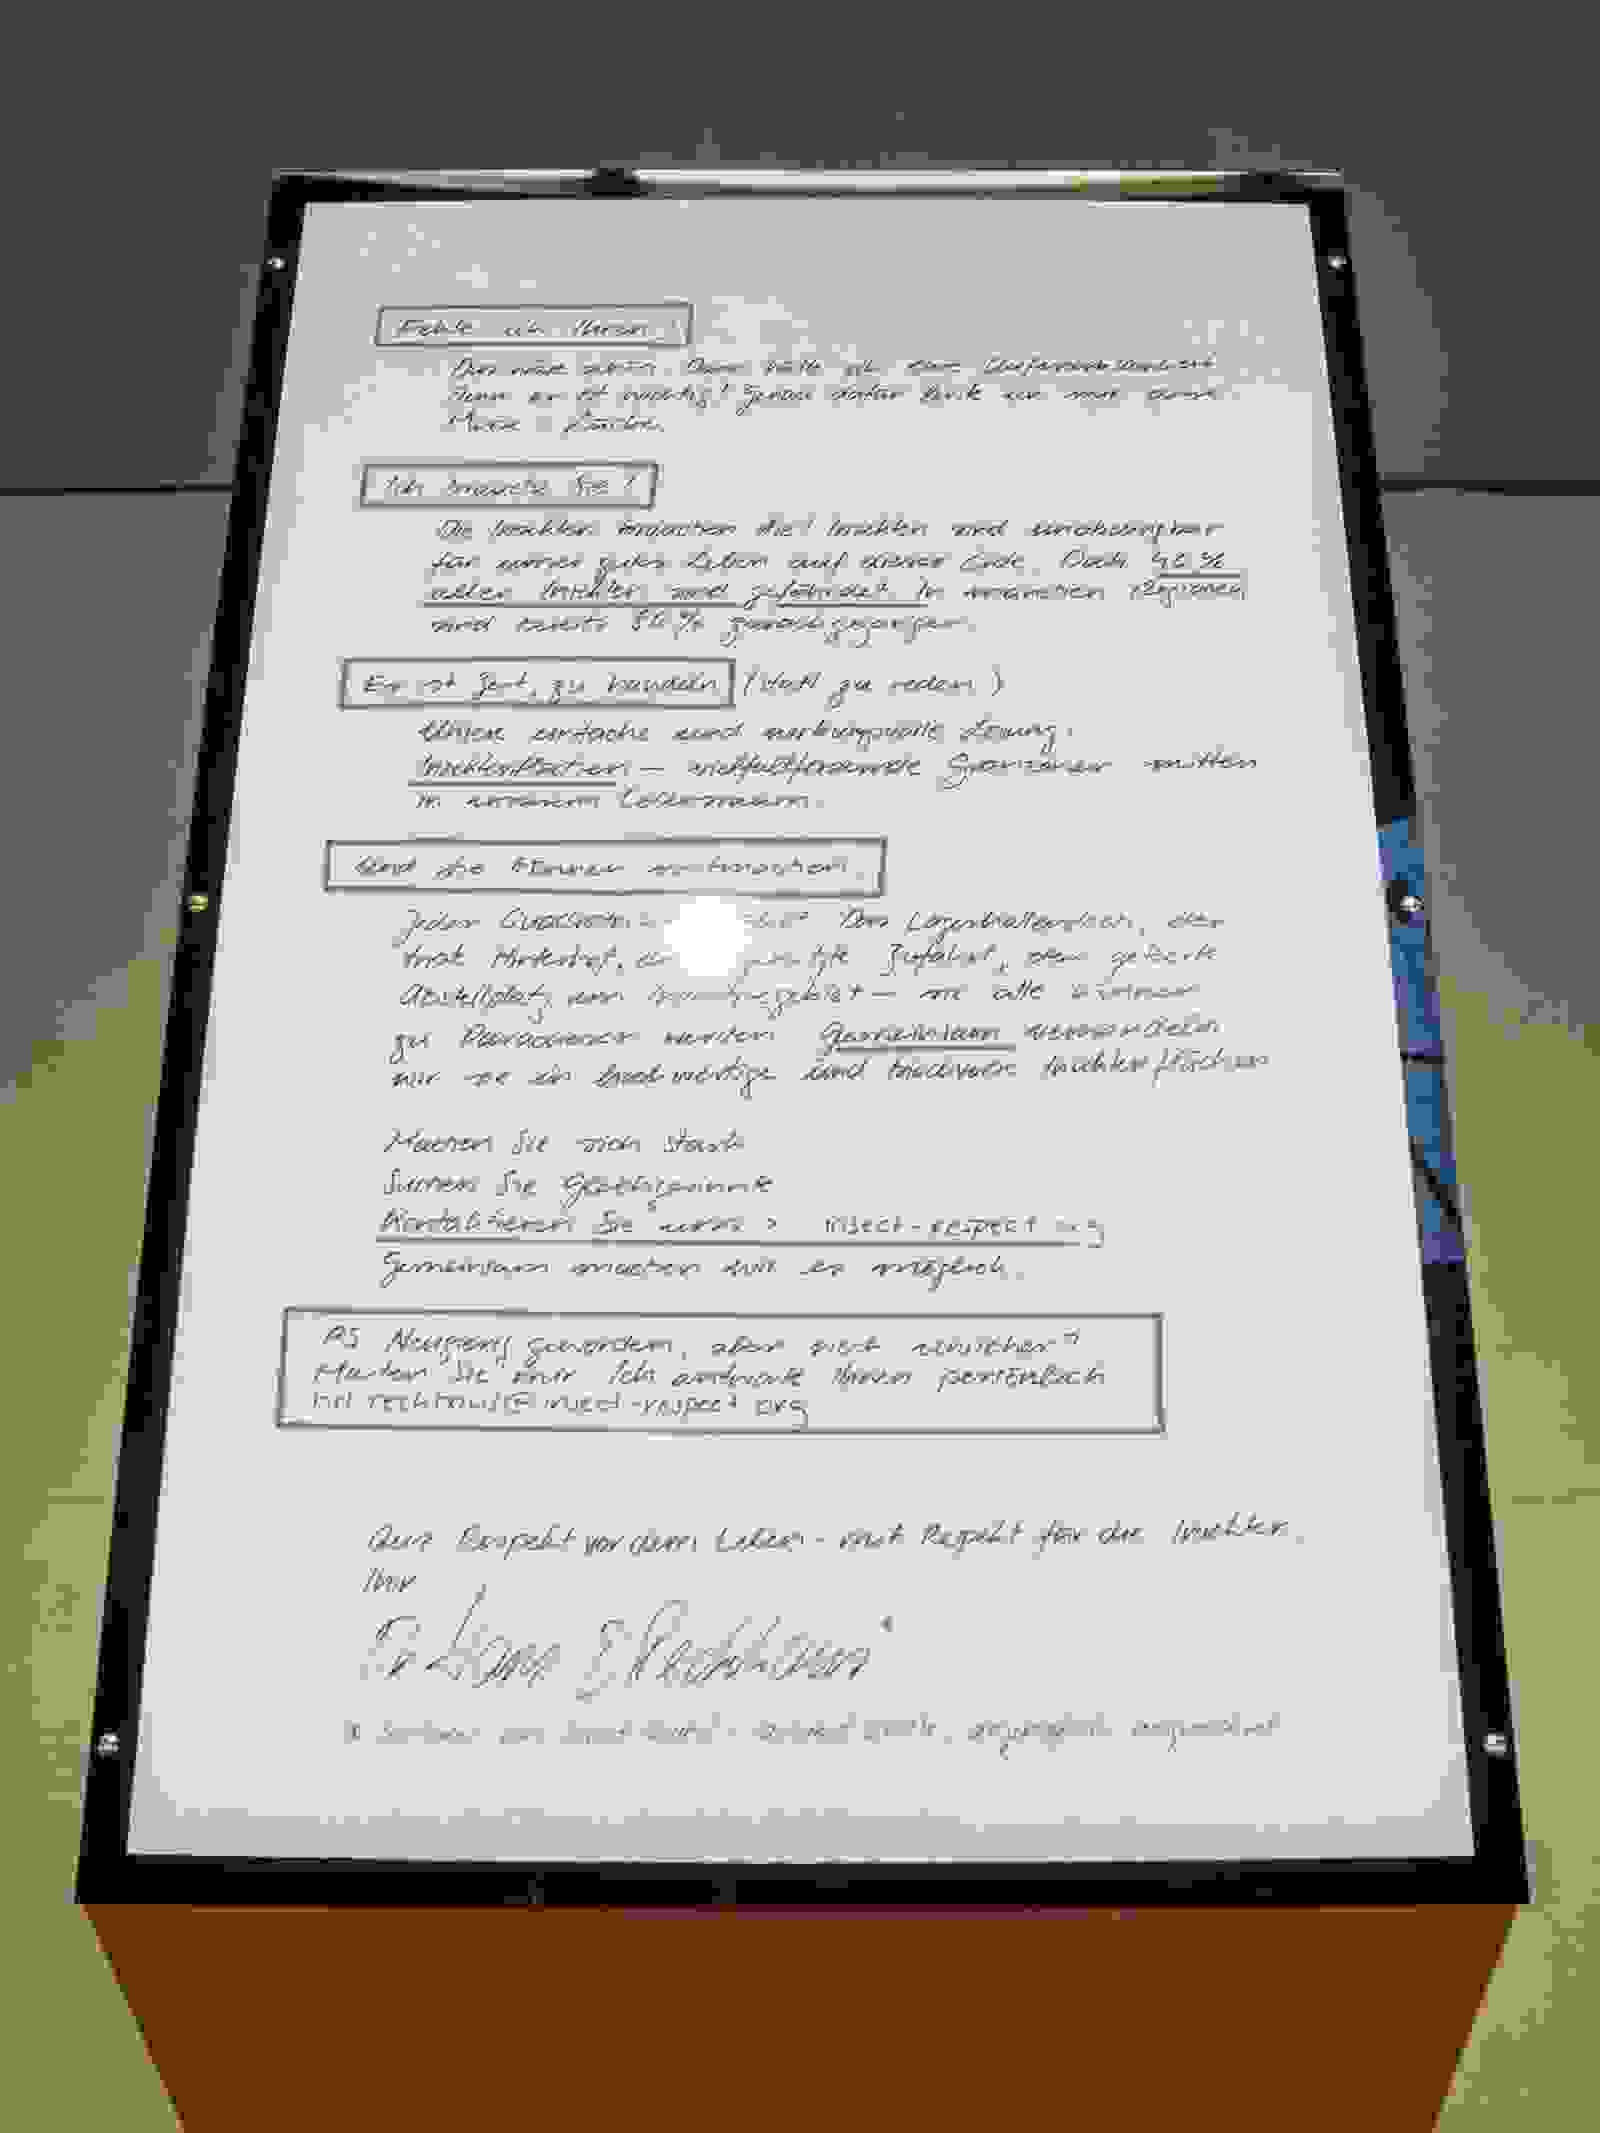 Fehle ich Ihnen?
Das wäre schön. Dann hätte ich Ihre Aufmerksamkeit
denn er ist wichtig! Genau dafür
Ich brauche Sie!
Die Insekten brauchen Sie! Insekten sind unabdingbar
für unser gutes Leben auf dieser Erde. Doch 40%
aller Insekten sind gefährdet. In manchen Regionen
sind bereits 80% zurückgegangen.
Es ist Zeit, zu handeln (statt zu reden)
Unsere einfache und wirkungsvolle Lösung:
Insektenflächen – vielfaltfördernde Grünzonen mitten
in unserem Lebensraum.
Und Sie können mitmachen!
Jeder Das Lagerhallendach, der
triste Hinterhof, Zufahrt, der geteerte
Abstellplatz im – sie alle können
zu Paradiesen werden. Gemeinsam verwandeln
wir sie in hochwertige und Insektenflächen
Machen Sie sich stark
Summen Sie
Kontaktieren Sie uns > insect-respect.org
Gemeinsam machen wir es möglich.
PS Neugierig geworden, aber noch unsicher?
Mailen Sie mir. Ich antworte Ihnen persönlich
hd.reckhaus@insect-respect.org
Aus Respekt vor dem Leben – mit Respekt für die Insekten.
Ihr
Dr. Hans D. Reckhaus*